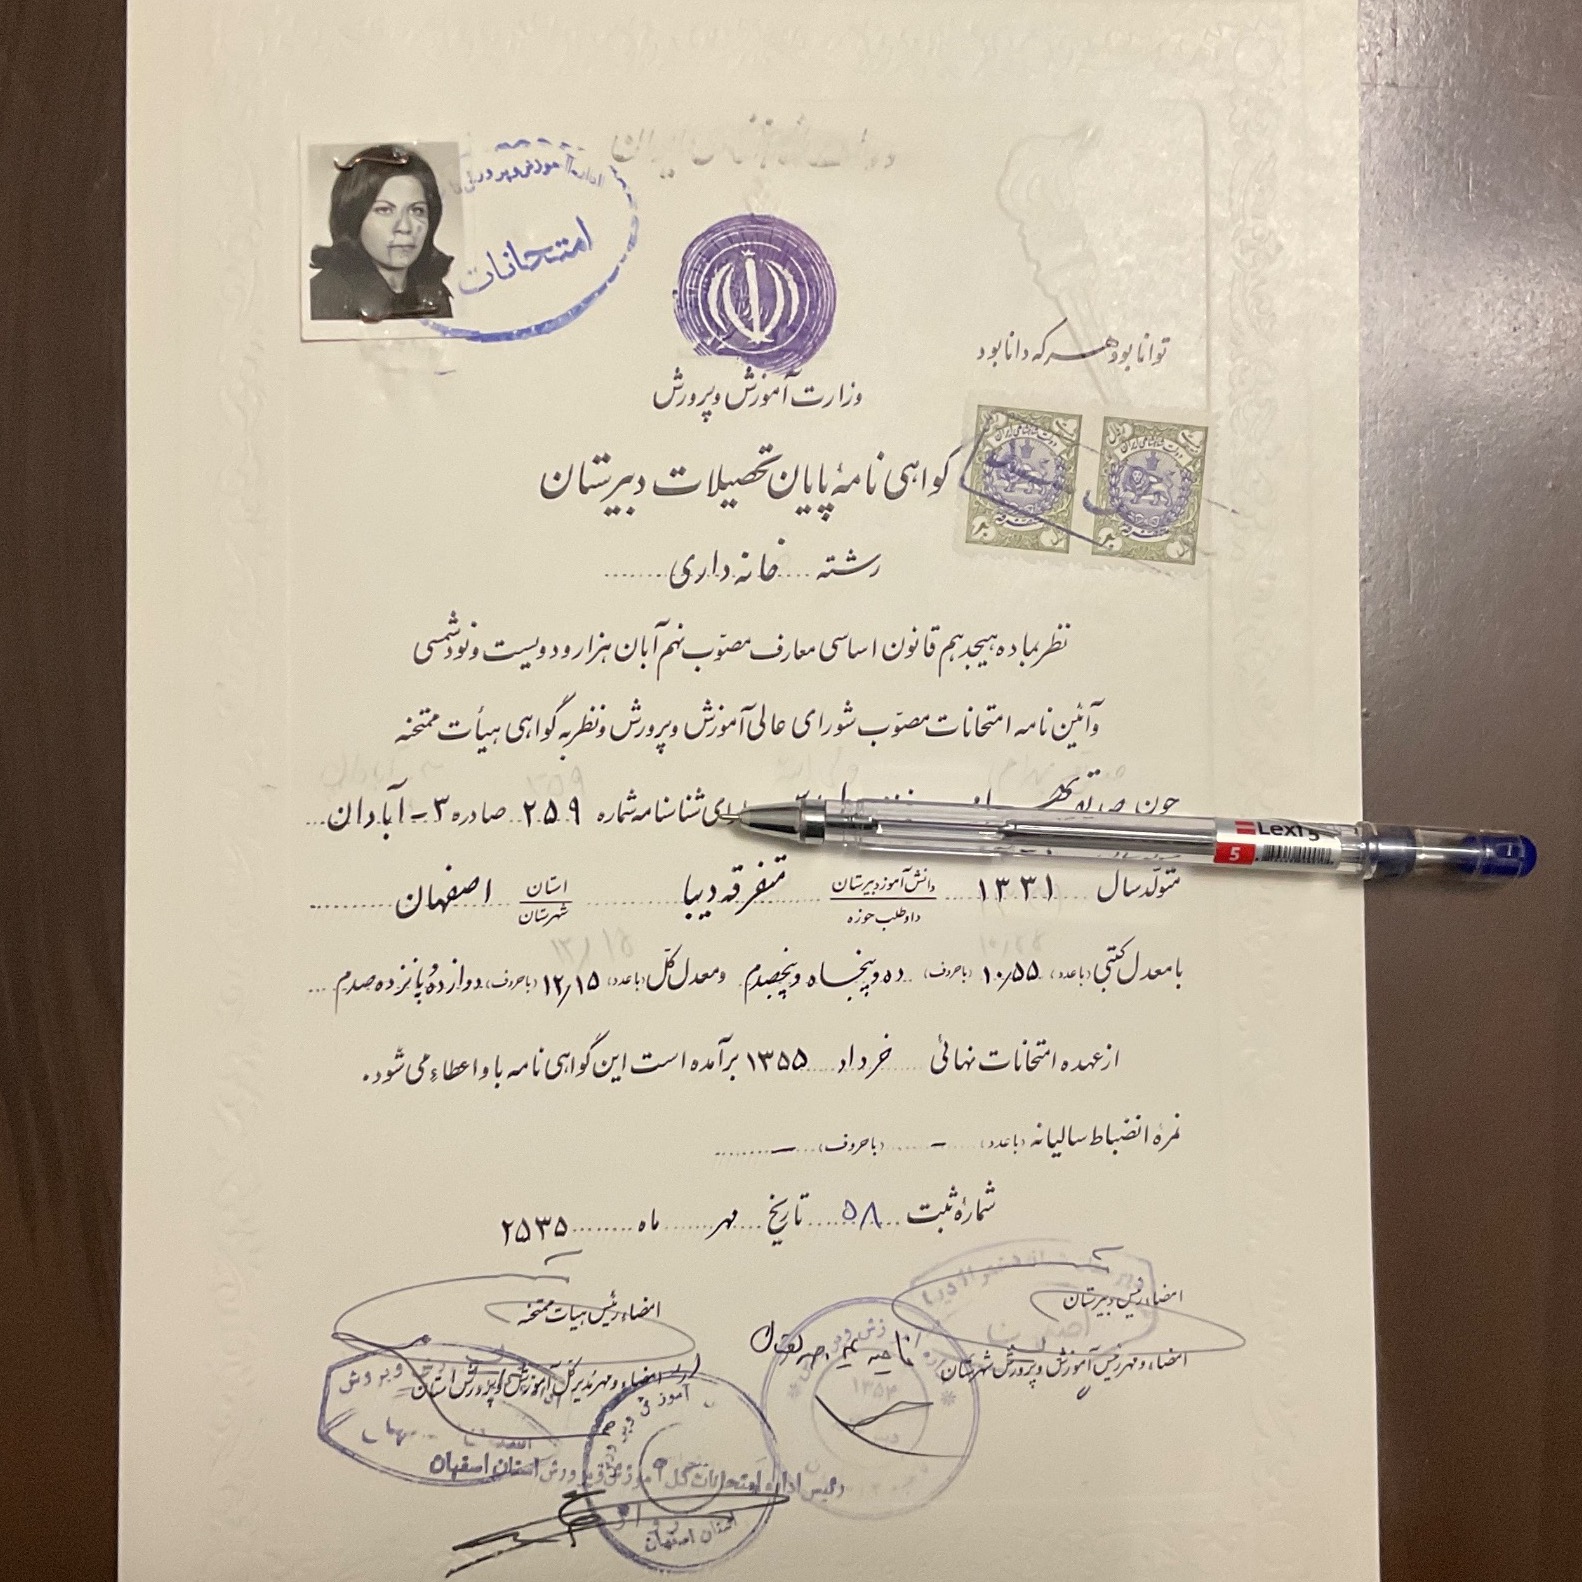 امتحانات
توانا بود هر که دانا بود
وزارت آموزش و پرورش
گواهی نامهٔ پایان تحصیلات دبیرستان
رشته خانه داری
نظر بماده هیجدهم قانون اساسی معارف مصوّب نهم آبان هزار و دویست و نود شمسی
وآئین نامه امتحانات مصوّب شورای عالی آموزش و پرورش و نظر به گواهی هیأت ممتحنه
چون شناسنامه شماره ۲۵۹ صادره ۳-آبادان
متولّد سال ۱۳۳۱ دانش آموز دبیرستان متفرقه دیبا استان اصفهان
داوطلب حوزه شهرستان
با معدل کتبی (با عدد) ۱۰/۵۵ (با حروف) ده و پنجاه و پنجصدم و معدل کلّ (با عدد) ۱۲/۱۵ (با حروف) دوازده و پانزده صدم
از عهده امتحانات نهائی خرداد ۱۳۵۵ برآمده است این گواهی نامه باو اعطاء می شود.
نمرهٔ انضباط سالیانه (با عدد) - (با حروف) -
شمارهٔ ثبت ۵۸ تاریخ مهر ماه ۲۵۳۵
امضاء رئیس دبیرستان
امضاء رئیس هیأت ممتحنه
امضاء و مهر رئیس آموزش و پرورش شهرستان
امضاء و مهر مدیر کل آموزش و پرورش استان
رئیس اداره امتحانات کل آموزش و پرورش استان اصفهان
استان اصفهان
Lexi 5
5